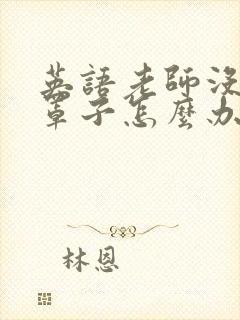 英語老師沒
罩子怎麼办
林恩